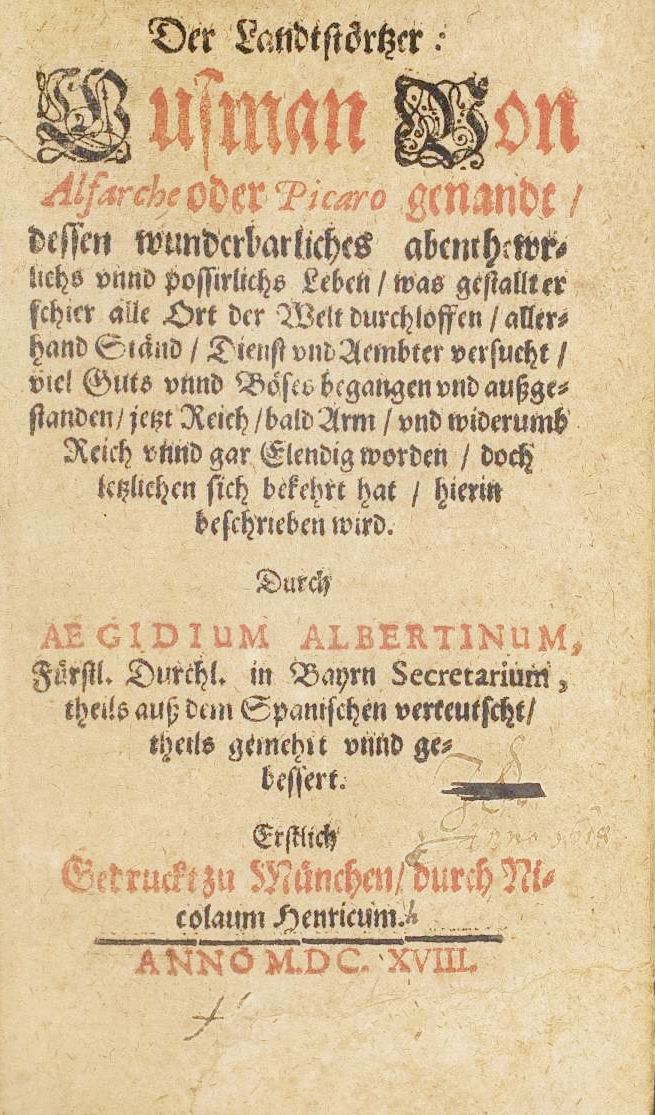 Der Landtstörtzer:
Gusman Von
Alfarche oder Picaro genandt /
dessen wunderbarliches abenthewr-
lichs vnnd possirlichs Leben / was gestallt er
schier alle Ort der Welt durchloffen / aller-
hand Ständ / Dienst vnd Aembter versucht /
viel Guts vnnd Böses begangen vnd außge-
standen / jetzt Reich / bald Arm / vnd widerumb
Reich vnnd gar Elendig worden / doch
letzlichen sich bekehrt hat / hierin
beschrieben wird.
Durch
AEGIDIUM ALBERTINUM,
Fürstl. Durchl. in Bayrn Secretarium,
theils auß dem Spanischen verteutscht /
theils gemehrt vnnd ge-
bessert.
Anno 1618
Erstlich
Gedruckt zu München / durch Ni-
colaum Henricum.
ANNO M.DC. XVIII.